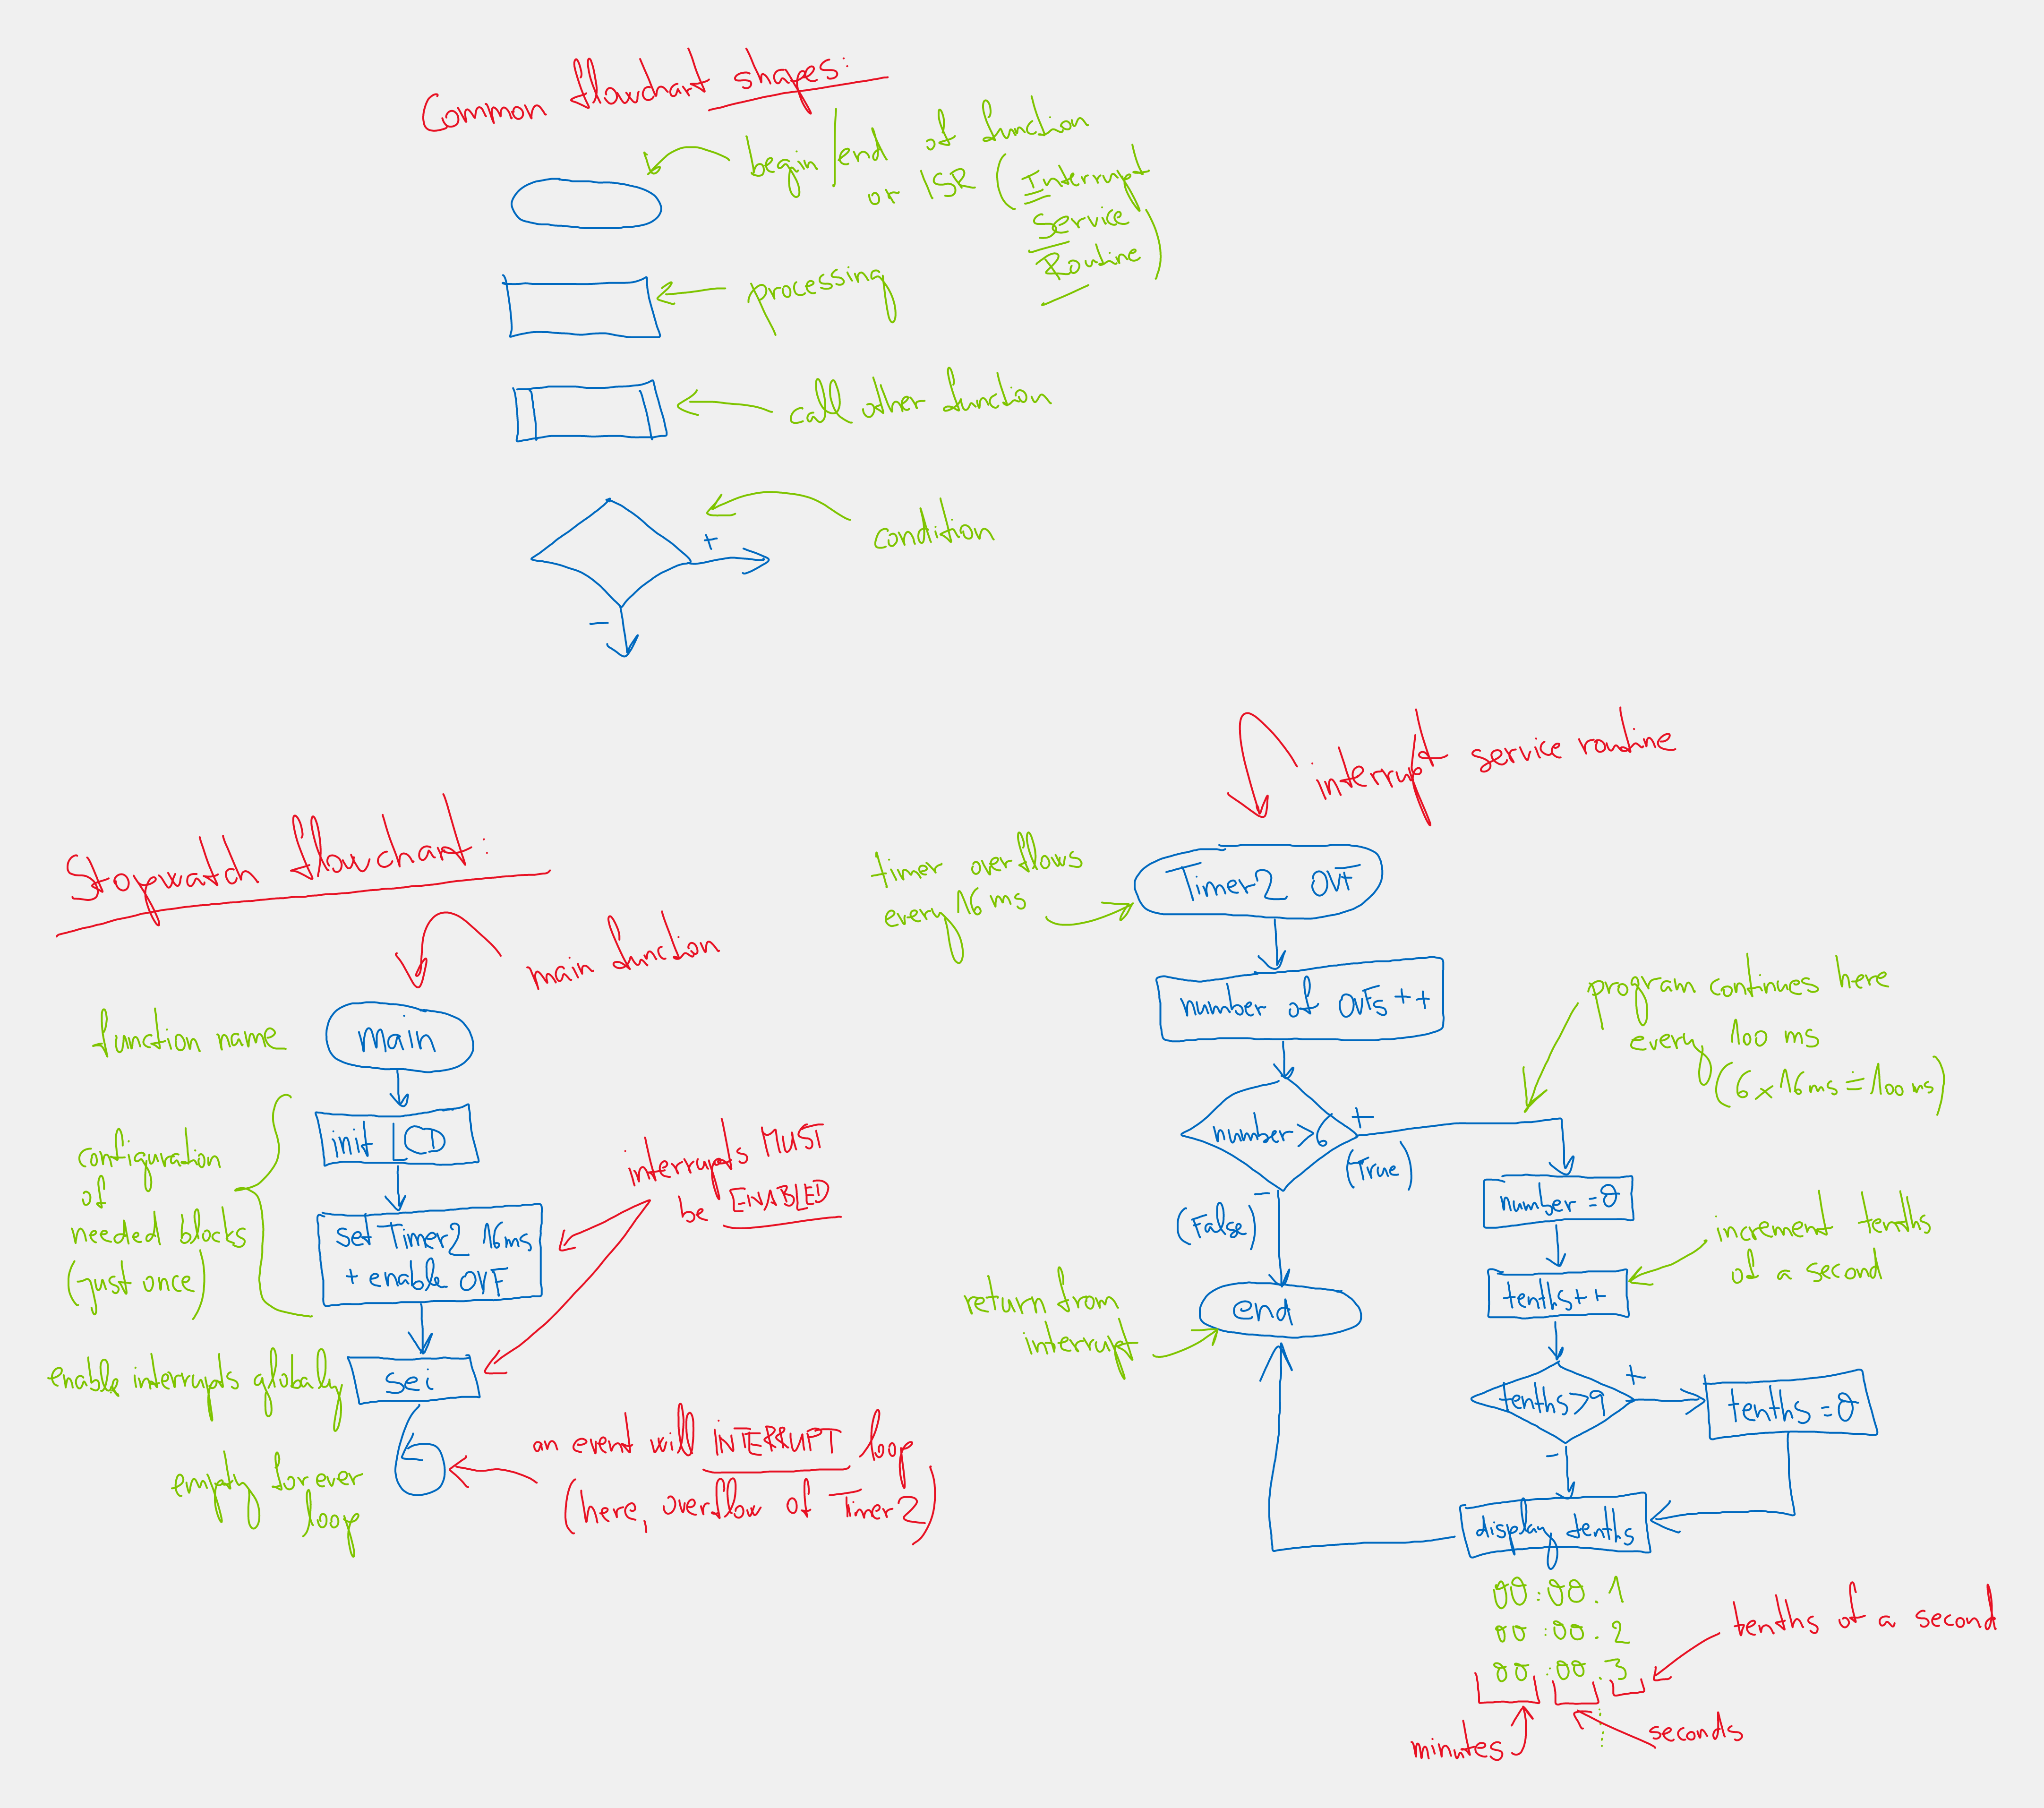 Common flowchart shapes:
begin/end of function
or ISR (Interrupt
Service
Routine)
processing
call other function
+
condition
-
Stopwatch flowchart:
main function
function name
main
configuration
of
needed blocks
(just once)
init LCD
set Timer2 16ms
+ enable OVF
interrupts MUST
be ENABLED
enable interrupts globally
sei
empty forever
loop
an event will INTERRUPT loop
(here, overflow of Timer2)
interrupt service routine
timer overflows
every 16 ms
Timer2 OVF
number of OVFs ++
program continues here
every 100 ms
(6 x 16 ms ≐ 100 ms)
number > 6
+
(True)
-
(False)
number = 0
tenths++
increment tenths
of a second
return from
interrupt
end
tenths > 9
+
tenths = 0
-
display tenths
00:00.1
00:00.2
00:00.3
tenths of a second
minutes
seconds